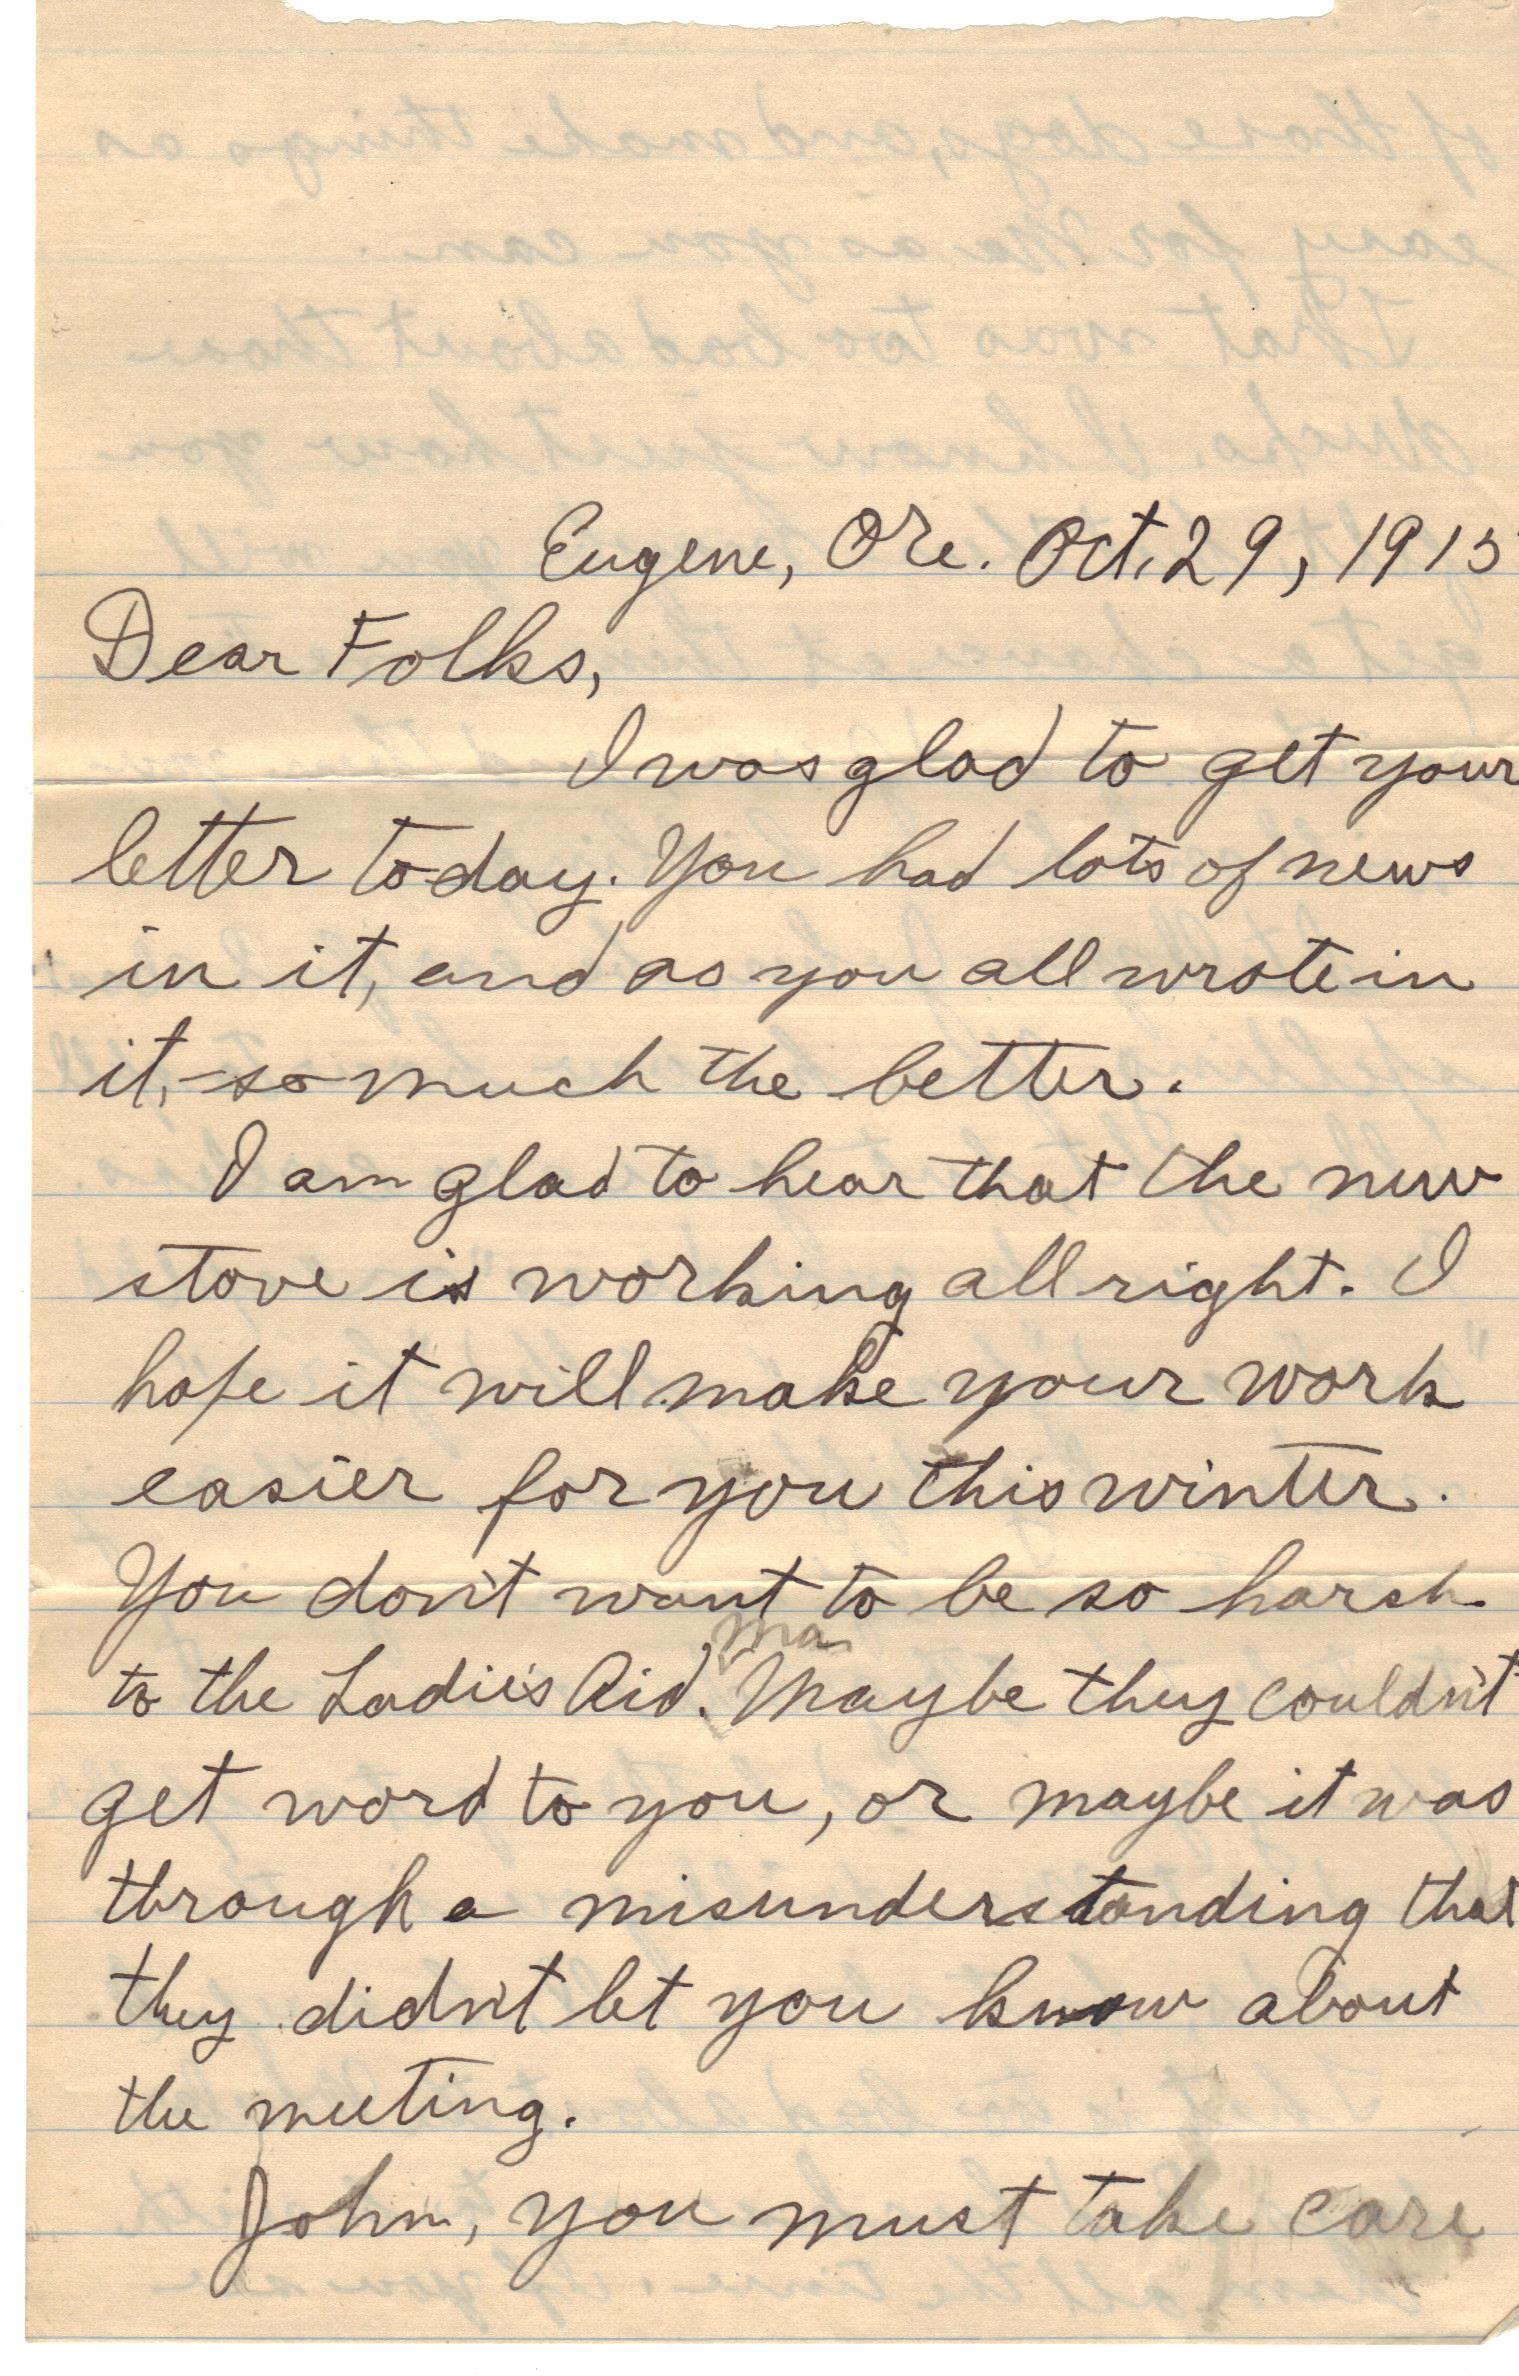 Eugene, Ore. Oct. 29, 1915
Dear Folks,
I was glad to get your
letter to-day. You had lots of news
in it, and as you all wrote in
it, - so much the better.
I am glad to hear that the new
stove is working all right. I
hope it will make your work
easier for you this winter.
You don't want to be so harsh
to the Ladie's Aid, Ma. Maybe they couldn't
get word to you, or maybe it was
through a misunderstanding that
they didn't let you know about
the meeting.
John, you must take care